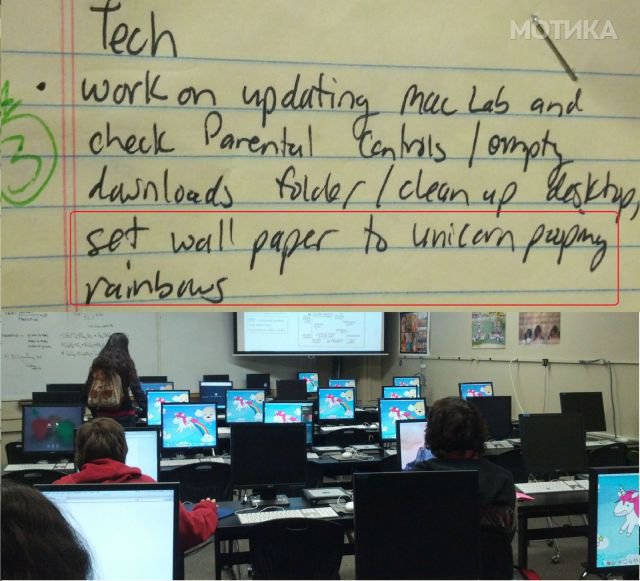 МОТИКА
Tech
• work on updating Mac Lab and
3
check Parental Controls / empty
downloads folder / clean up desktop,
set wall paper to unicorn pooping
rainbows